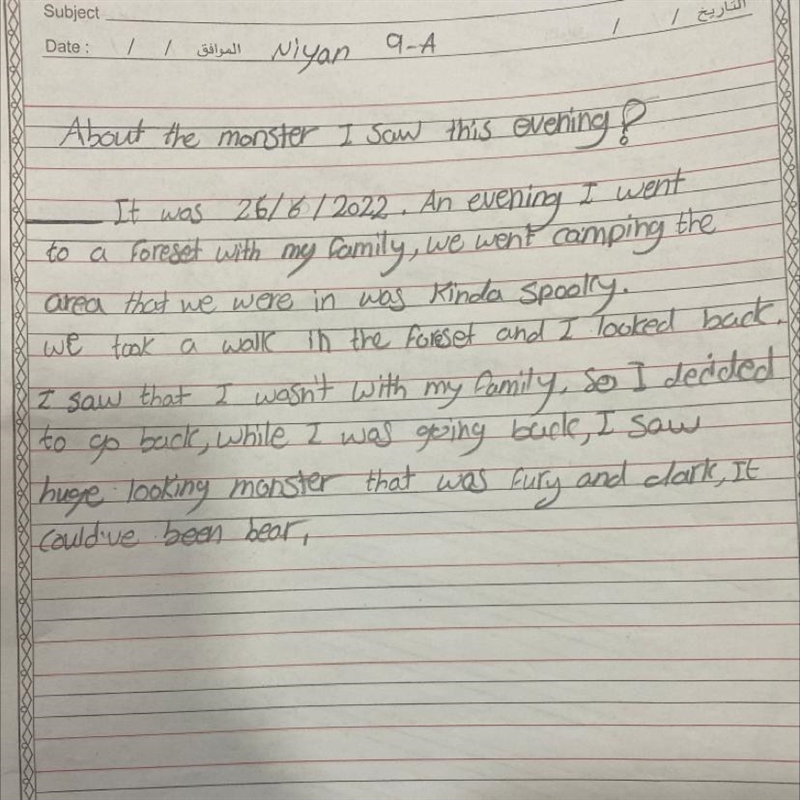 Subject
التاريخ / /
Date : / / الموافق Niyan 9-A
About the monster I saw this evening?
It was 26/6/2022. An evening I went
to a foreset with my family, we went camping the
area that we were in was kinda spooky.
we took a walk in the foreset and I looked back.
I saw that I wasn't with my family, so I decided
to go back, while I was going back, I saw
huge looking monster that was fury and dark, It
could've been bear,